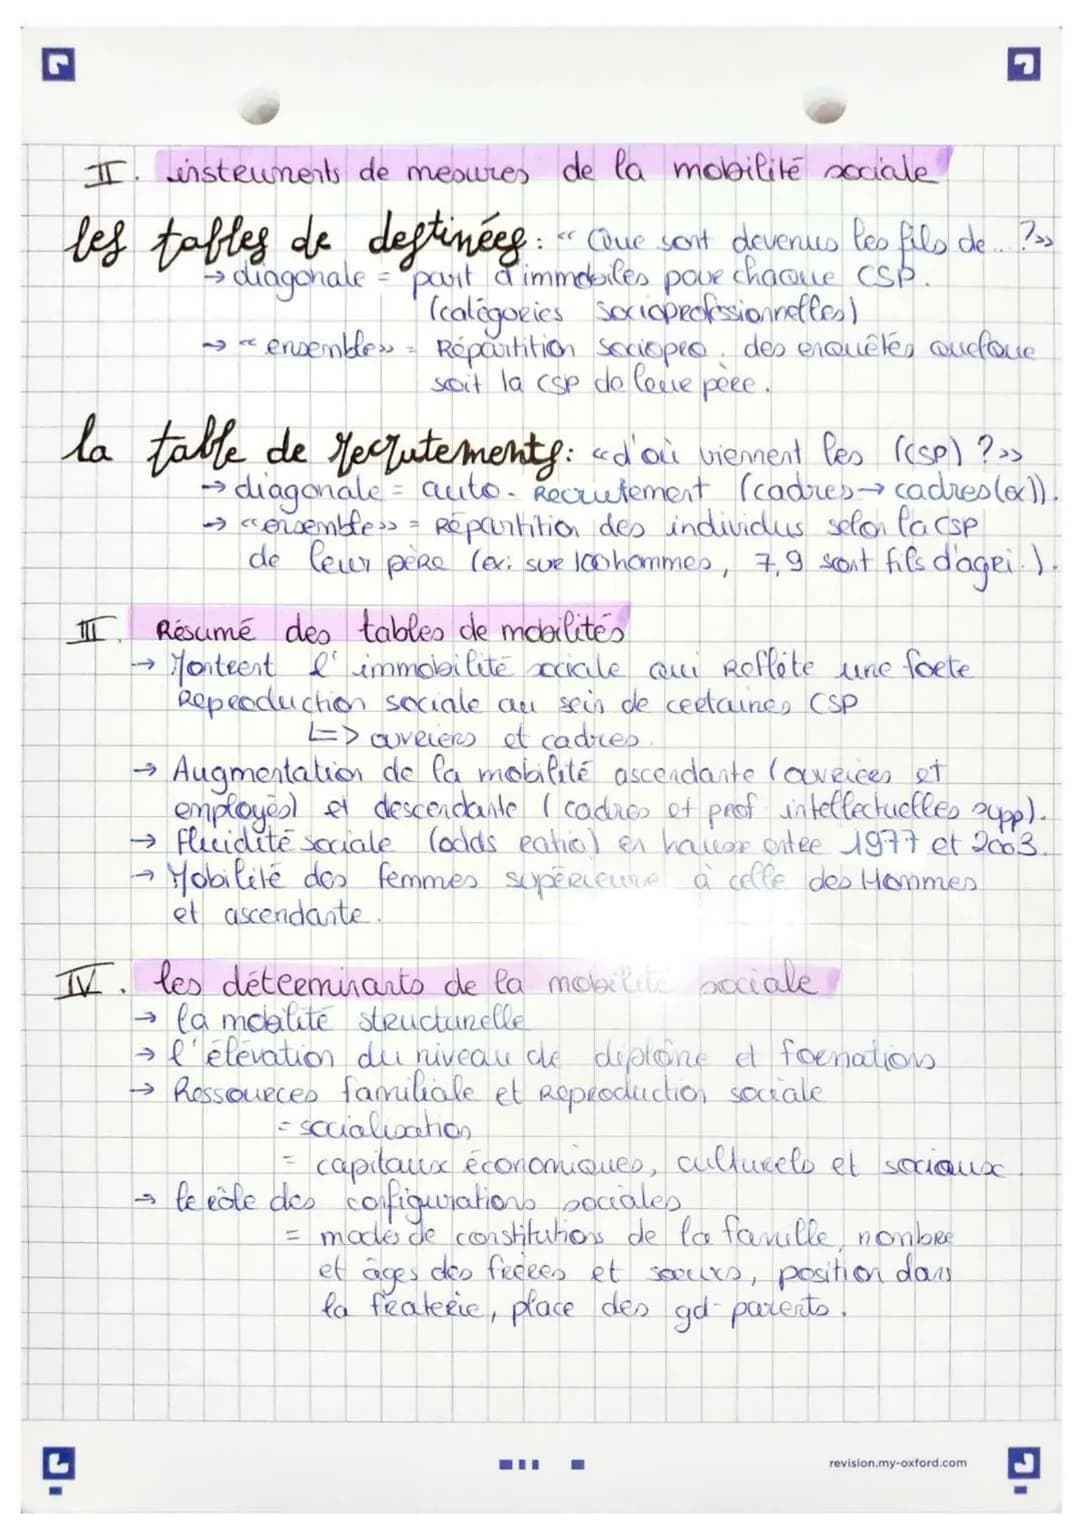 II. instruments de mesures de la mobilité sociale
les tables de destinées : « Que sont devenus les fils de... ? »
→ diagonale = part d'immobiles pour chaque CSP.
(catégories socioprofessionnelles)
→ « ensemble » = Répartition sociopro. des enquêtés quelque
soit la CSP de leur père.
la table de recrutements : « d'où viennent les (CSP) ? »
→ diagonale = auto-recrutement (cadres → cadres (ex)).
→ « ensemble » = Répartition des individus selon la CSP
de leur père (ex: sur 100 hommes, 7,9 sont fils d'agri.).
III. Résumé des tables de mobilités
→ Montrent l'immobilité sociale qui reflète une forte
Reproduction sociale au sein de certaines CSP
↳ ouvriers et cadres.
→ Augmentation de la mobilité ascendante (ouvriers et
employés) et descendante (cadres et prof intellectuelles supp).
→ fluidité sociale (odds ratio) en hausse entre 1977 et 2003.
→ Mobilité des femmes supérieure à celle des Hommes
et ascendante.
IV. les déterminants de la mobilité sociale
→ la mobilité structurelle
→ l'élévation du niveau de diplôme et formations
→ Ressources familiale et Reproduction sociale
= socialisation
= capitaux économiques, culturels et sociaux.
→ le rôle des configurations sociales
= modes de constitutions de la famille, nombre
et âges des frères et soeurs, position dans
la fraterie, place des gd-parents.
revision.my-oxford.com